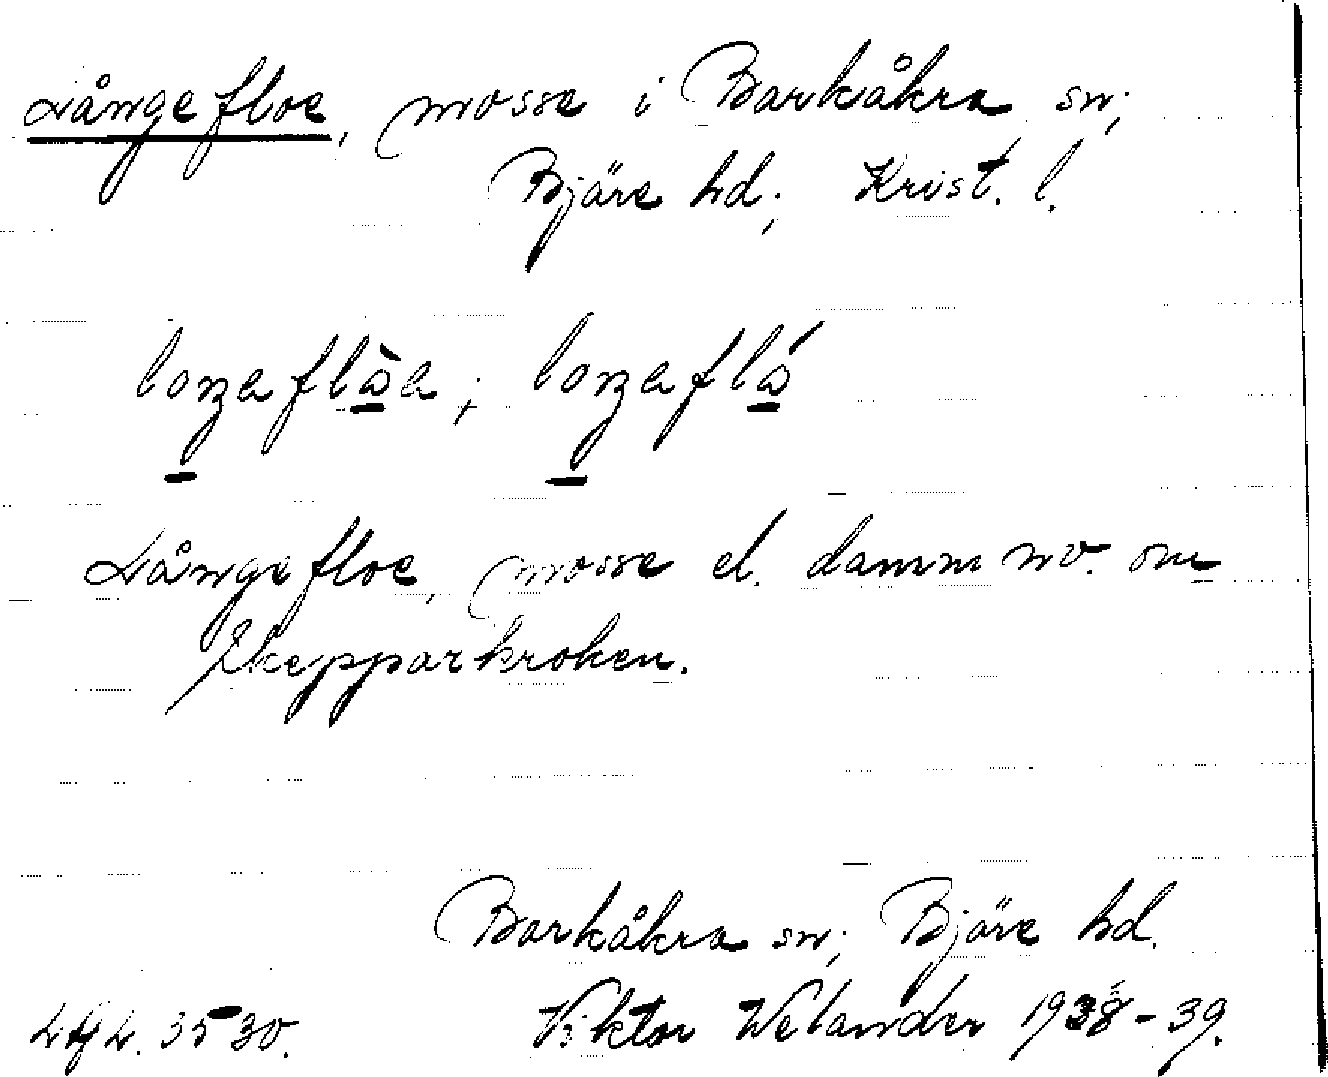 Långefloe, mosse i Barkåkra sn;
Bjäre hd; Krist. l.
Långefloe, mosse el. damm nv. om
Skepparkroken.
Barkåkra sn; Bjäre hd.
Viktor Welander 1938-39.
3530.